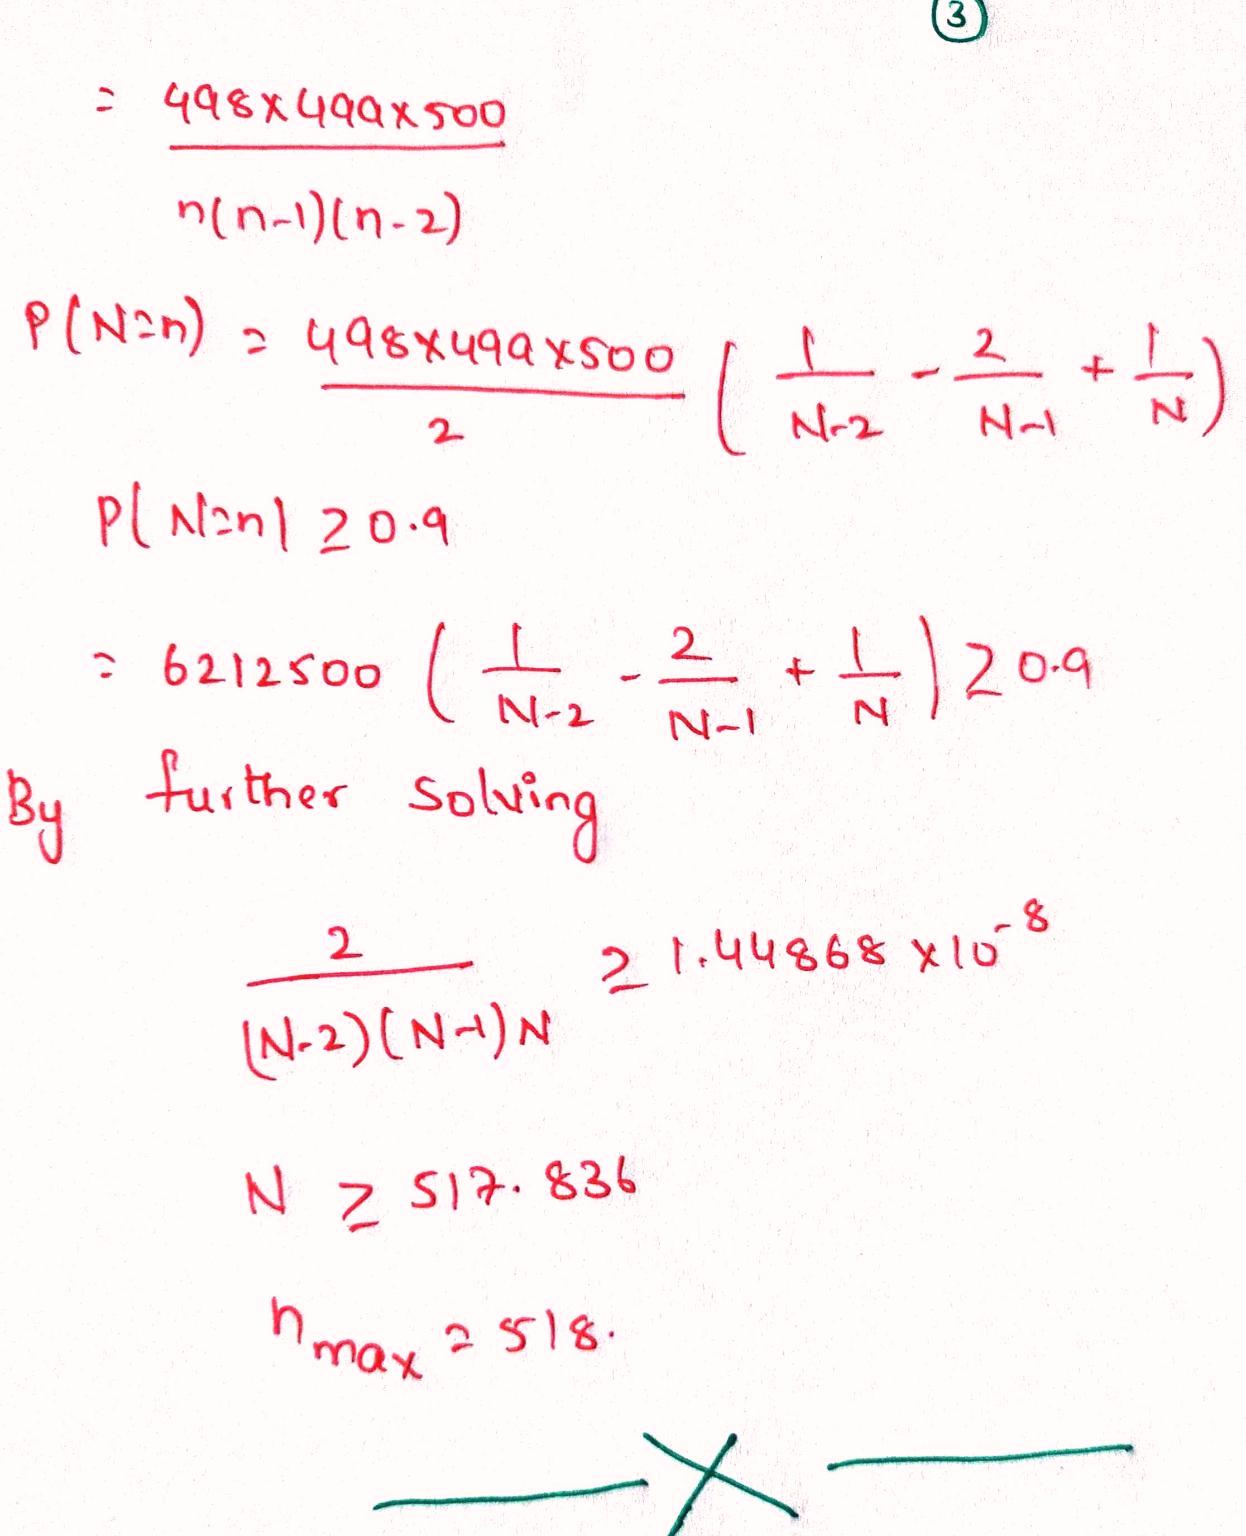 3
= 498×499×500 / n(n-1)(n-2)
P(N=n) = 498×499×500 / 2 ( 1/N-2 - 2/N-1 + 1/N )
P(N=n) ≥ 0.9
= 6212500 ( 1/N-2 - 2/N-1 + 1/N ) ≥ 0.9
By further solving
2 / (N-2)(N-1)N ≥ 1.44868 × 10^-8
N ≥ 517.836
n max = 518.